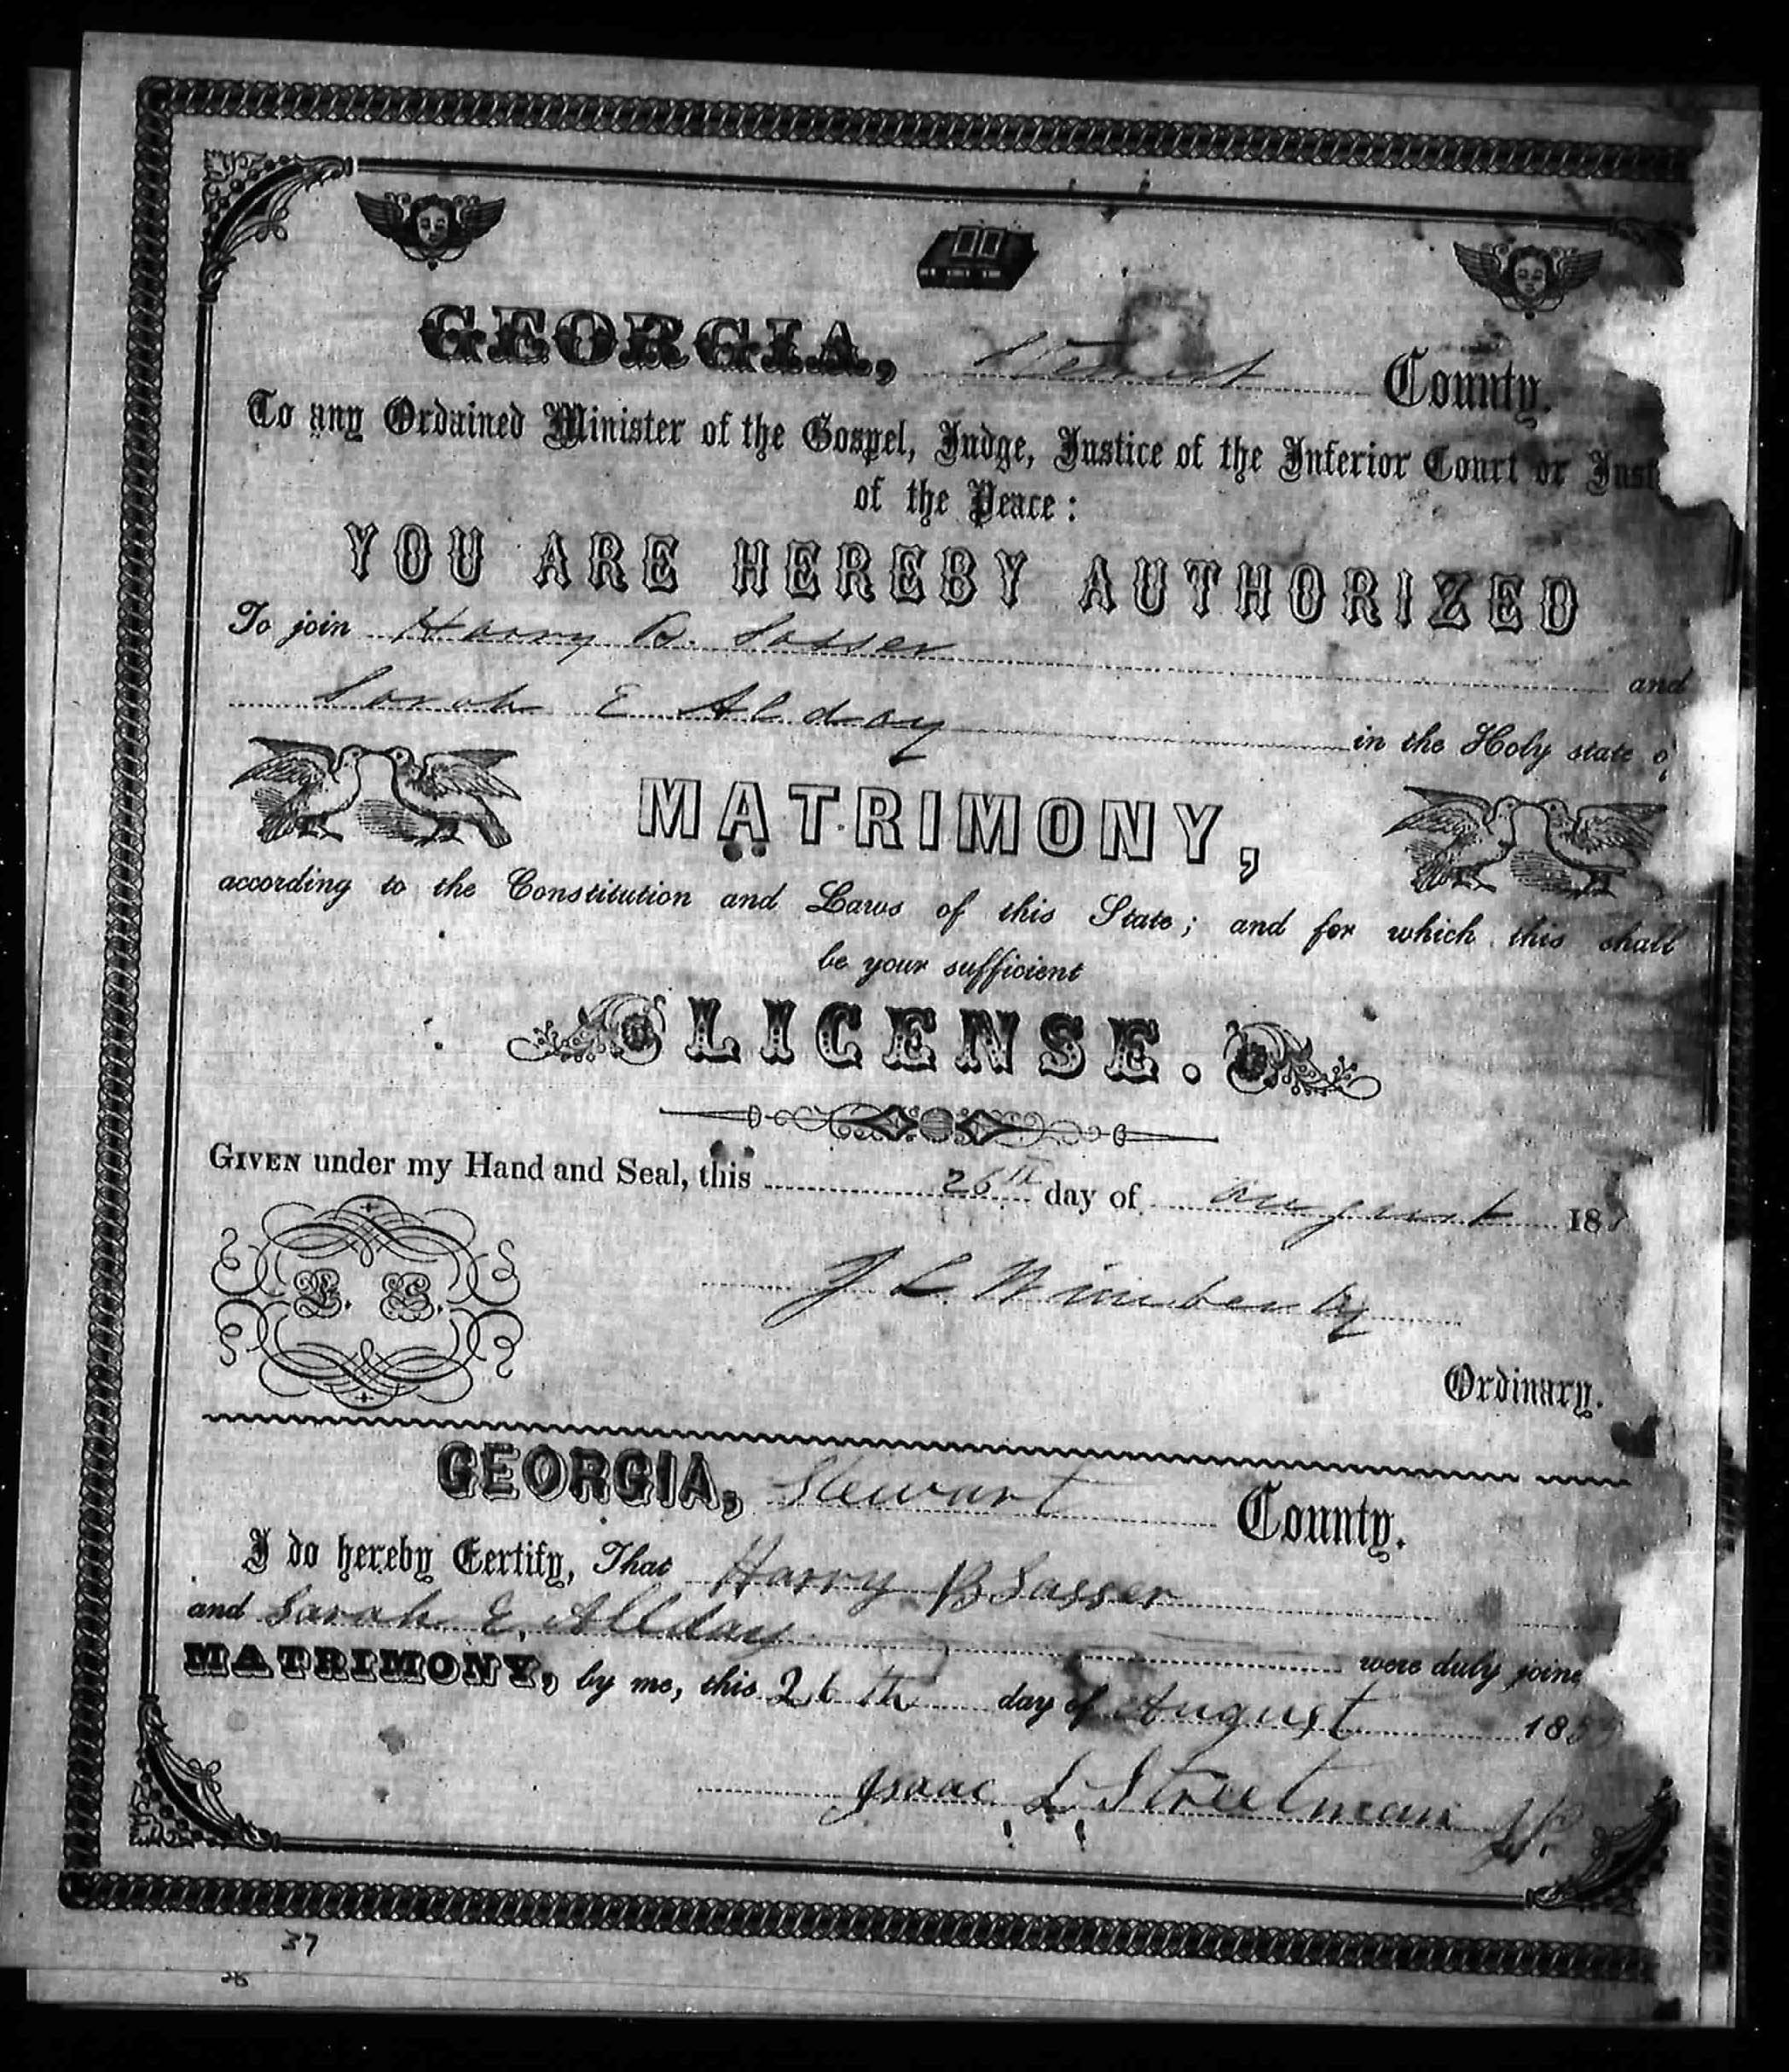 GEORGIA, Stewart County.
To any Ordained Minister of the Gospel, Judge, Justice of the Inferior Court or Just
of the Peace:
YOU ARE HEREBY AUTHORIZED
To join Harry B. Sasser and
Sarah E Alday in the Holy state o
MATRIMONY,
according to the Constitution and Laws of this State; and for which this shall
be your sufficient
LICENSE.
GIVEN under my Hand and Seal, this 26th day of August 18
L. S.
J L Wimberly
Ordinary.
GEORGIA, Stewart County.
I do hereby Certify, That Harry B Sasser
and Sarah E. Allday were duly joine
MATRIMONY, by me, this 26th day of August 185
Isaac L Streetman J.P.
37